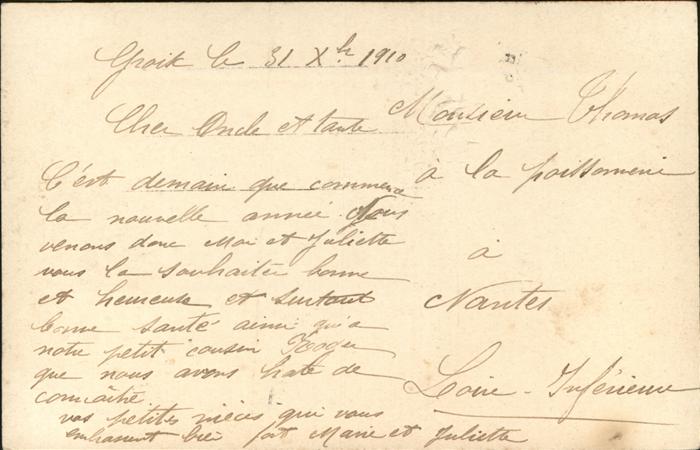 Groix le 31 Xbre 1910
Cher Oncle et tante
C'est demain que commence
la nouvelle année Nous
venons donc Moi et Juliette
vous la souhaitée bonne
et heureuse et surtout
bonne santé ainsi qu'a
notre petit cousin Roger
que nous avons hate de
connaître.
vos petites nièces qui vous
embrassent bien fort Marie et Juliette
Monsieur Thomas
à la poissonnerie
à
Nantes
Loire-Inférieure